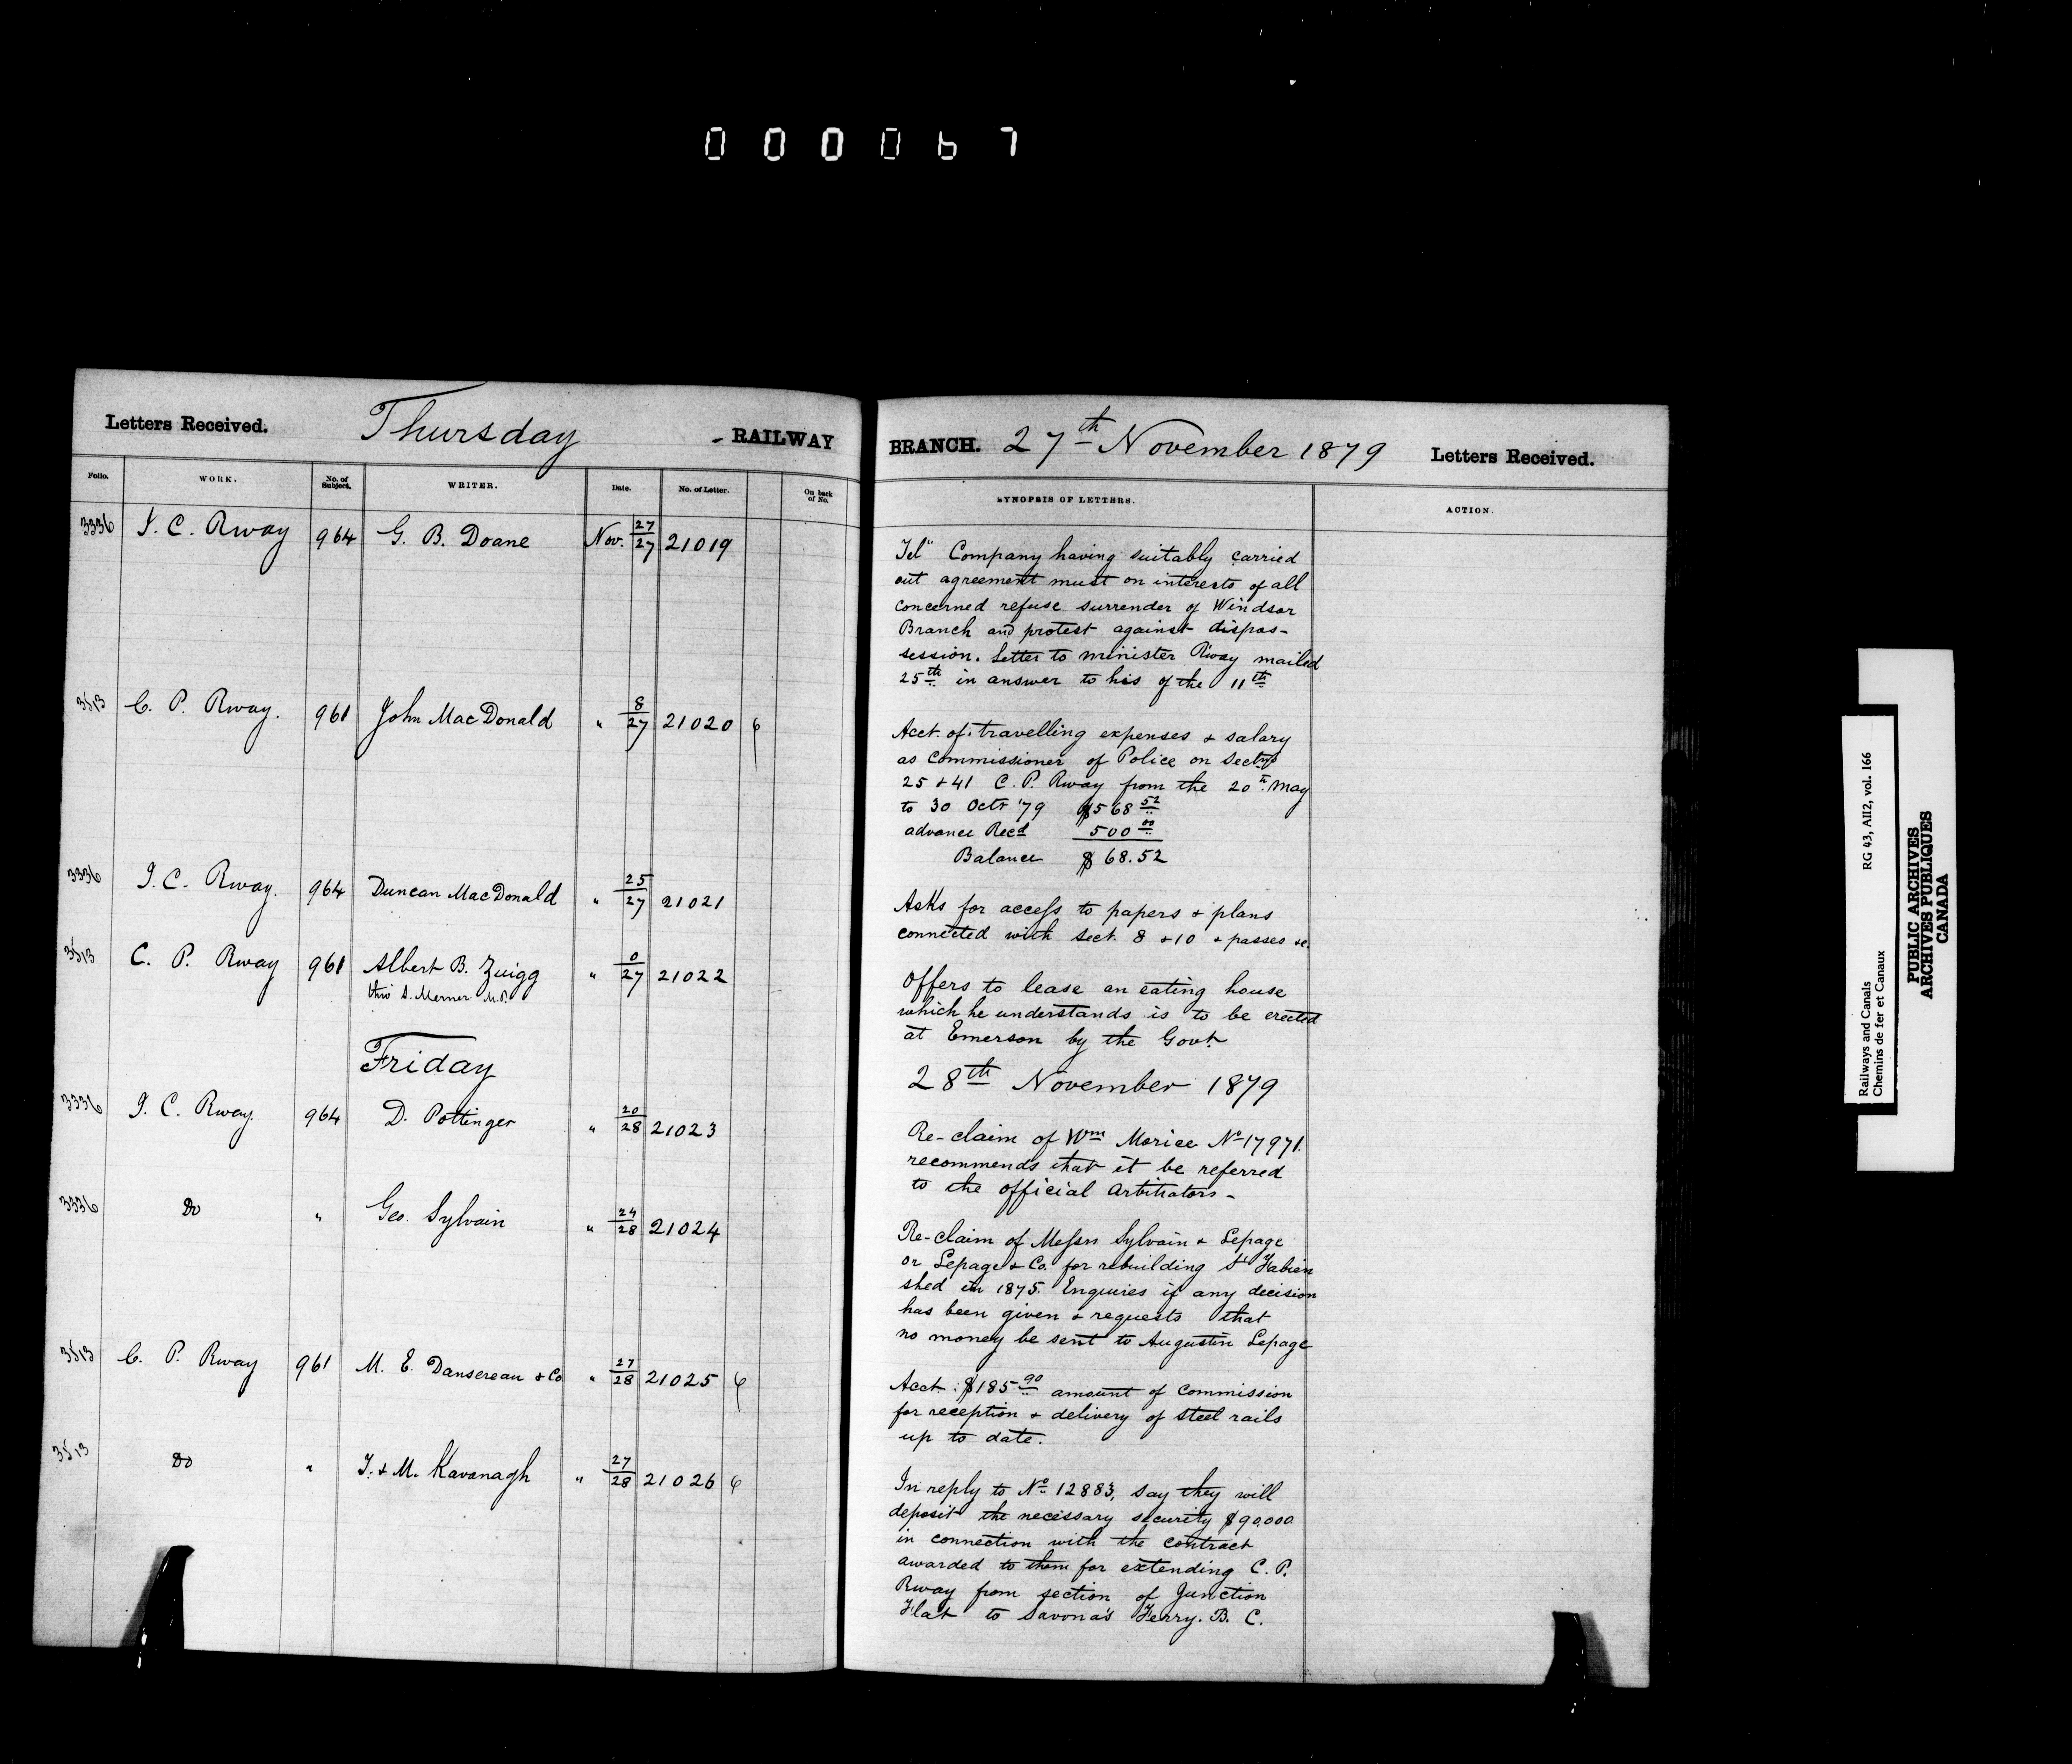 000067
Letters Received. Thursday - RAILWAY BRANCH. 27th November 1879 Letters Received.
Folio. WORK. No. of Subject. WRITER. Date. No. of Letter. On back of No. SYNOPSIS OF LETTERS. ACTION.
3336 I. C. Rway 964 G. B. Doane Nov. 27/27 21019
Tel" Company having suitably carried
out agreement must on interests of all
concerned refuse surrender of Windsor
Branch and protest against dispos-
session. Letter to minister Rway mailed
25th in answer to his of the 11th
3513 C. P. Rway. 961 John MacDonald " 8/27 21020 6
Acct. of travelling expenses & salary
as Commissioner of Police on Sectns
25 & 41 C. P. Rway from the 20th May
to 30 Octr '79 $568 52
advance Recd 500 00
Balance $68.52
3336 I. C. Rway. 964 Duncan MacDonald " 25/27 21021
Asks for access to papers & plans
connected with Sect. 8 & 10 & passes &c.
3513 C. P. Rway 961 Albert B. Zuigg " 0/27 21022
thro S. Merner M.P.
Offers to lease an eating house
which he understands is to be erected
at Emerson by the Govt.
Friday 28th November 1879
3336 I. C. Rway. 964 D. Pottinger " 20/28 21023
Re-claim of Wm Morice No 17971.
recommends that it be referred
to the official Arbitrators -
3336 Do " Geo. Sylvain " 24/28 21024
Re-claim of Messrs Sylvain & Lepage
or Lepage & Co. for rebuilding St Fabien
shed in 1875. Enquires if any decision
has been given & requests that
no money be sent to Augustin Lepage
3513 C. P. Rway 961 M. E. Dansereau & Co " 27/28 21025 6
Acct. $185 90 amount of Commission
for reception & delivery of steel rails
up to date.
3513 Do " T. & M. Kavanagh " 27/28 21026 6
In reply to No 12883, say they will
deposit the necessary security $90,000
in connection with the contract
awarded to them for extending C. P.
Rway from section of Junction
Flat to Savona's Ferry. B. C.
Railways and Canals RG 43, AII2, vol. 166
Chemins de fer et Canaux
PUBLIC ARCHIVES
ARCHIVES PUBLIQUES
CANADA